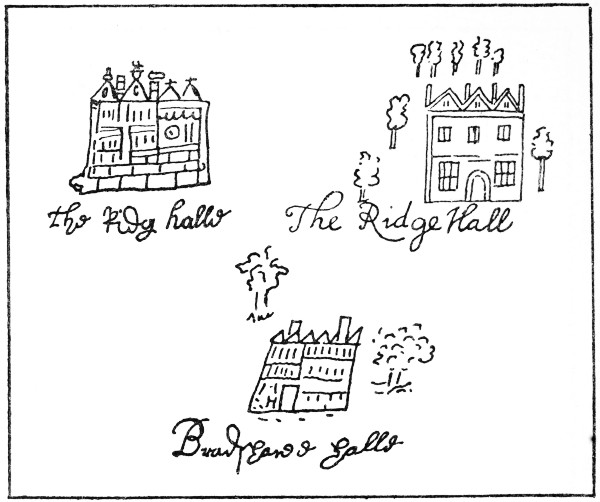 the Ridg halle
The Ridge Hall
Bradshawe halle